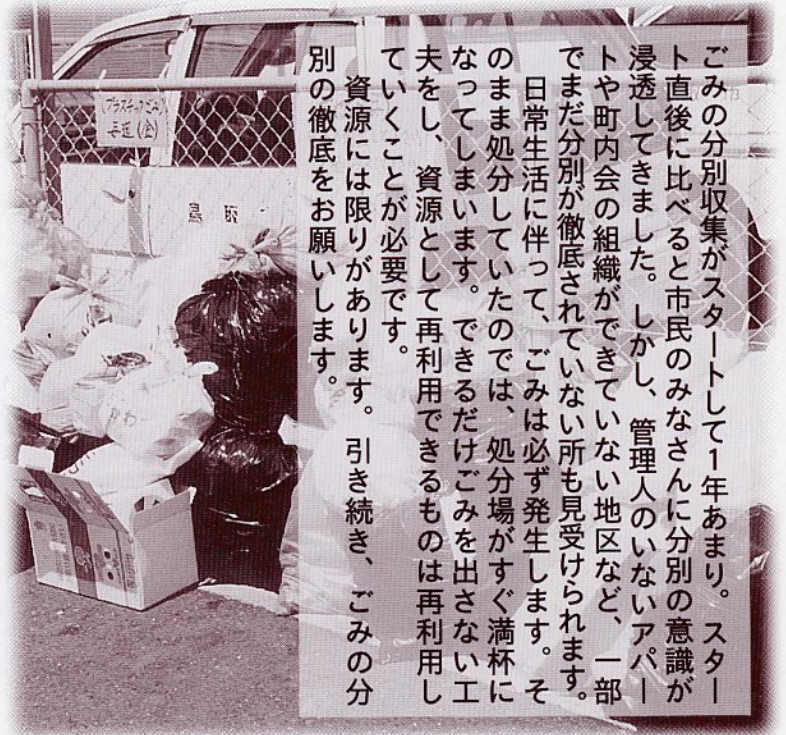 ごみの分別収集がスタートして1年あまり。スター
ト直後に比べると市民のみなさんに分別の意識が
浸透してきました。しかし、管理人のいないアパー
トや町内会の組織ができていない地区など、一部
でまだ分別が徹底されていない所も見受けられます。
日常生活に伴って、ごみは必ず発生します。そ
のまま処分していたのでは、処分場がすぐ満杯に
なってしまいます。できるだけごみを出さない工
夫をし、資源として再利用できるものは再利用し
ていくことが必要です。
資源には限りがあります。引き続き、ごみの分
別の徹底をお願いします。
プラスチックごみ
鳥取